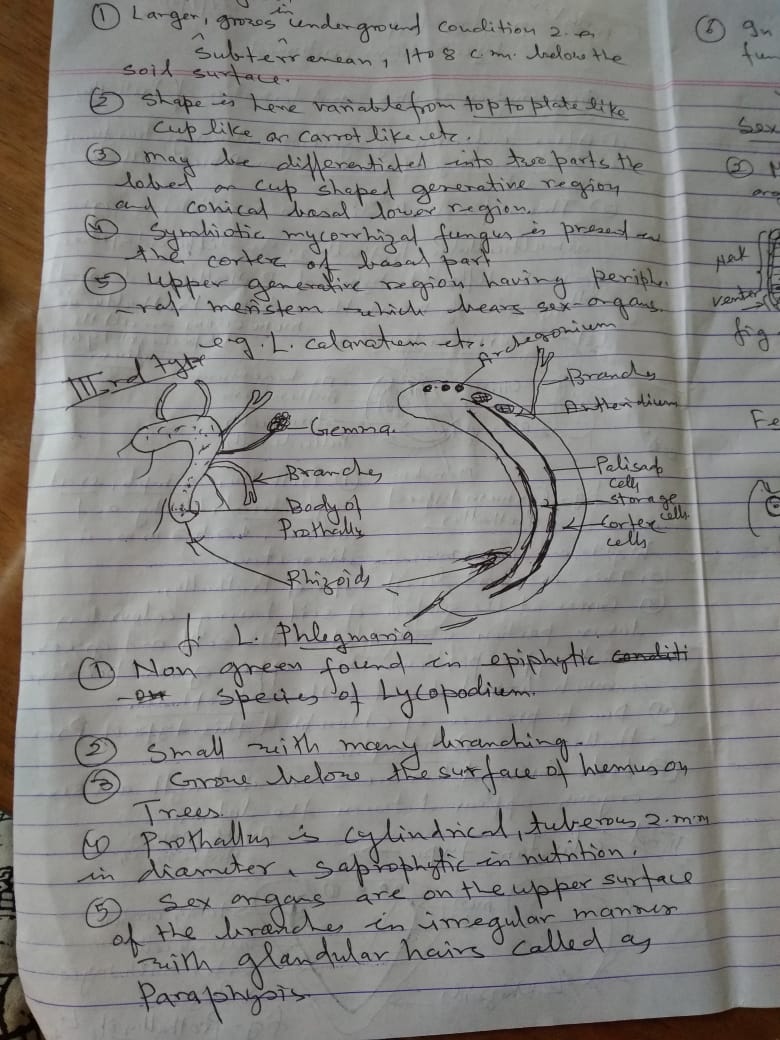 ① Larger, grows in underground condition i.e.
Subterranean, 1 to 8 c.m. below the
soil surface.
② Shape is here variable from top to plate like
Cup like or carrot like etc.
③ may be differentiated into two parts the
lobed or cup shaped generative region
and conical basal lower region.
④ Symbiotic mycorrhizal fungus is present in
the cortex of basal part
⑤ Upper generative region having periphe
-ral meristem which bears sex-organs.
e.g. L. calanatum etc.
IIIrd type
Archegonium
Branches
Antheridium
Gemma.
Branches
Body of
Prothalls
Rhizoids
Palisade
cells
storage
cells
Cortex
cells
fi. L. Phlegmaria
① Non green found in epiphytic conditi
-on species of Lycopodium.
② Small with many branching.
③ Grow below the surface of humus on
Trees.
④ Prothallus is cylindrical, tuberous 2.mm
in diameter, saprophytic in nutrition.
⑤ Sex organs are on the upper surface
of the branches in irregular manner
with glandular hairs called as
Paraphysis.
⑥ In
fun
Sex
①
org
Neck
venter
fig
Fe